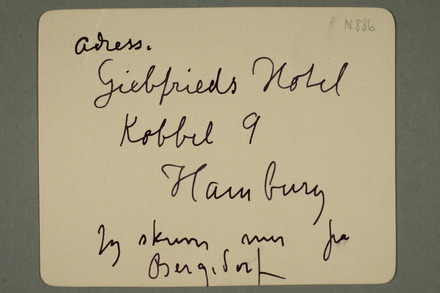 N 886
Adress.
Giebfrieds Hotel
Kobbel 9
Hamburg
Jg skriver mer fra
Bergsdorf